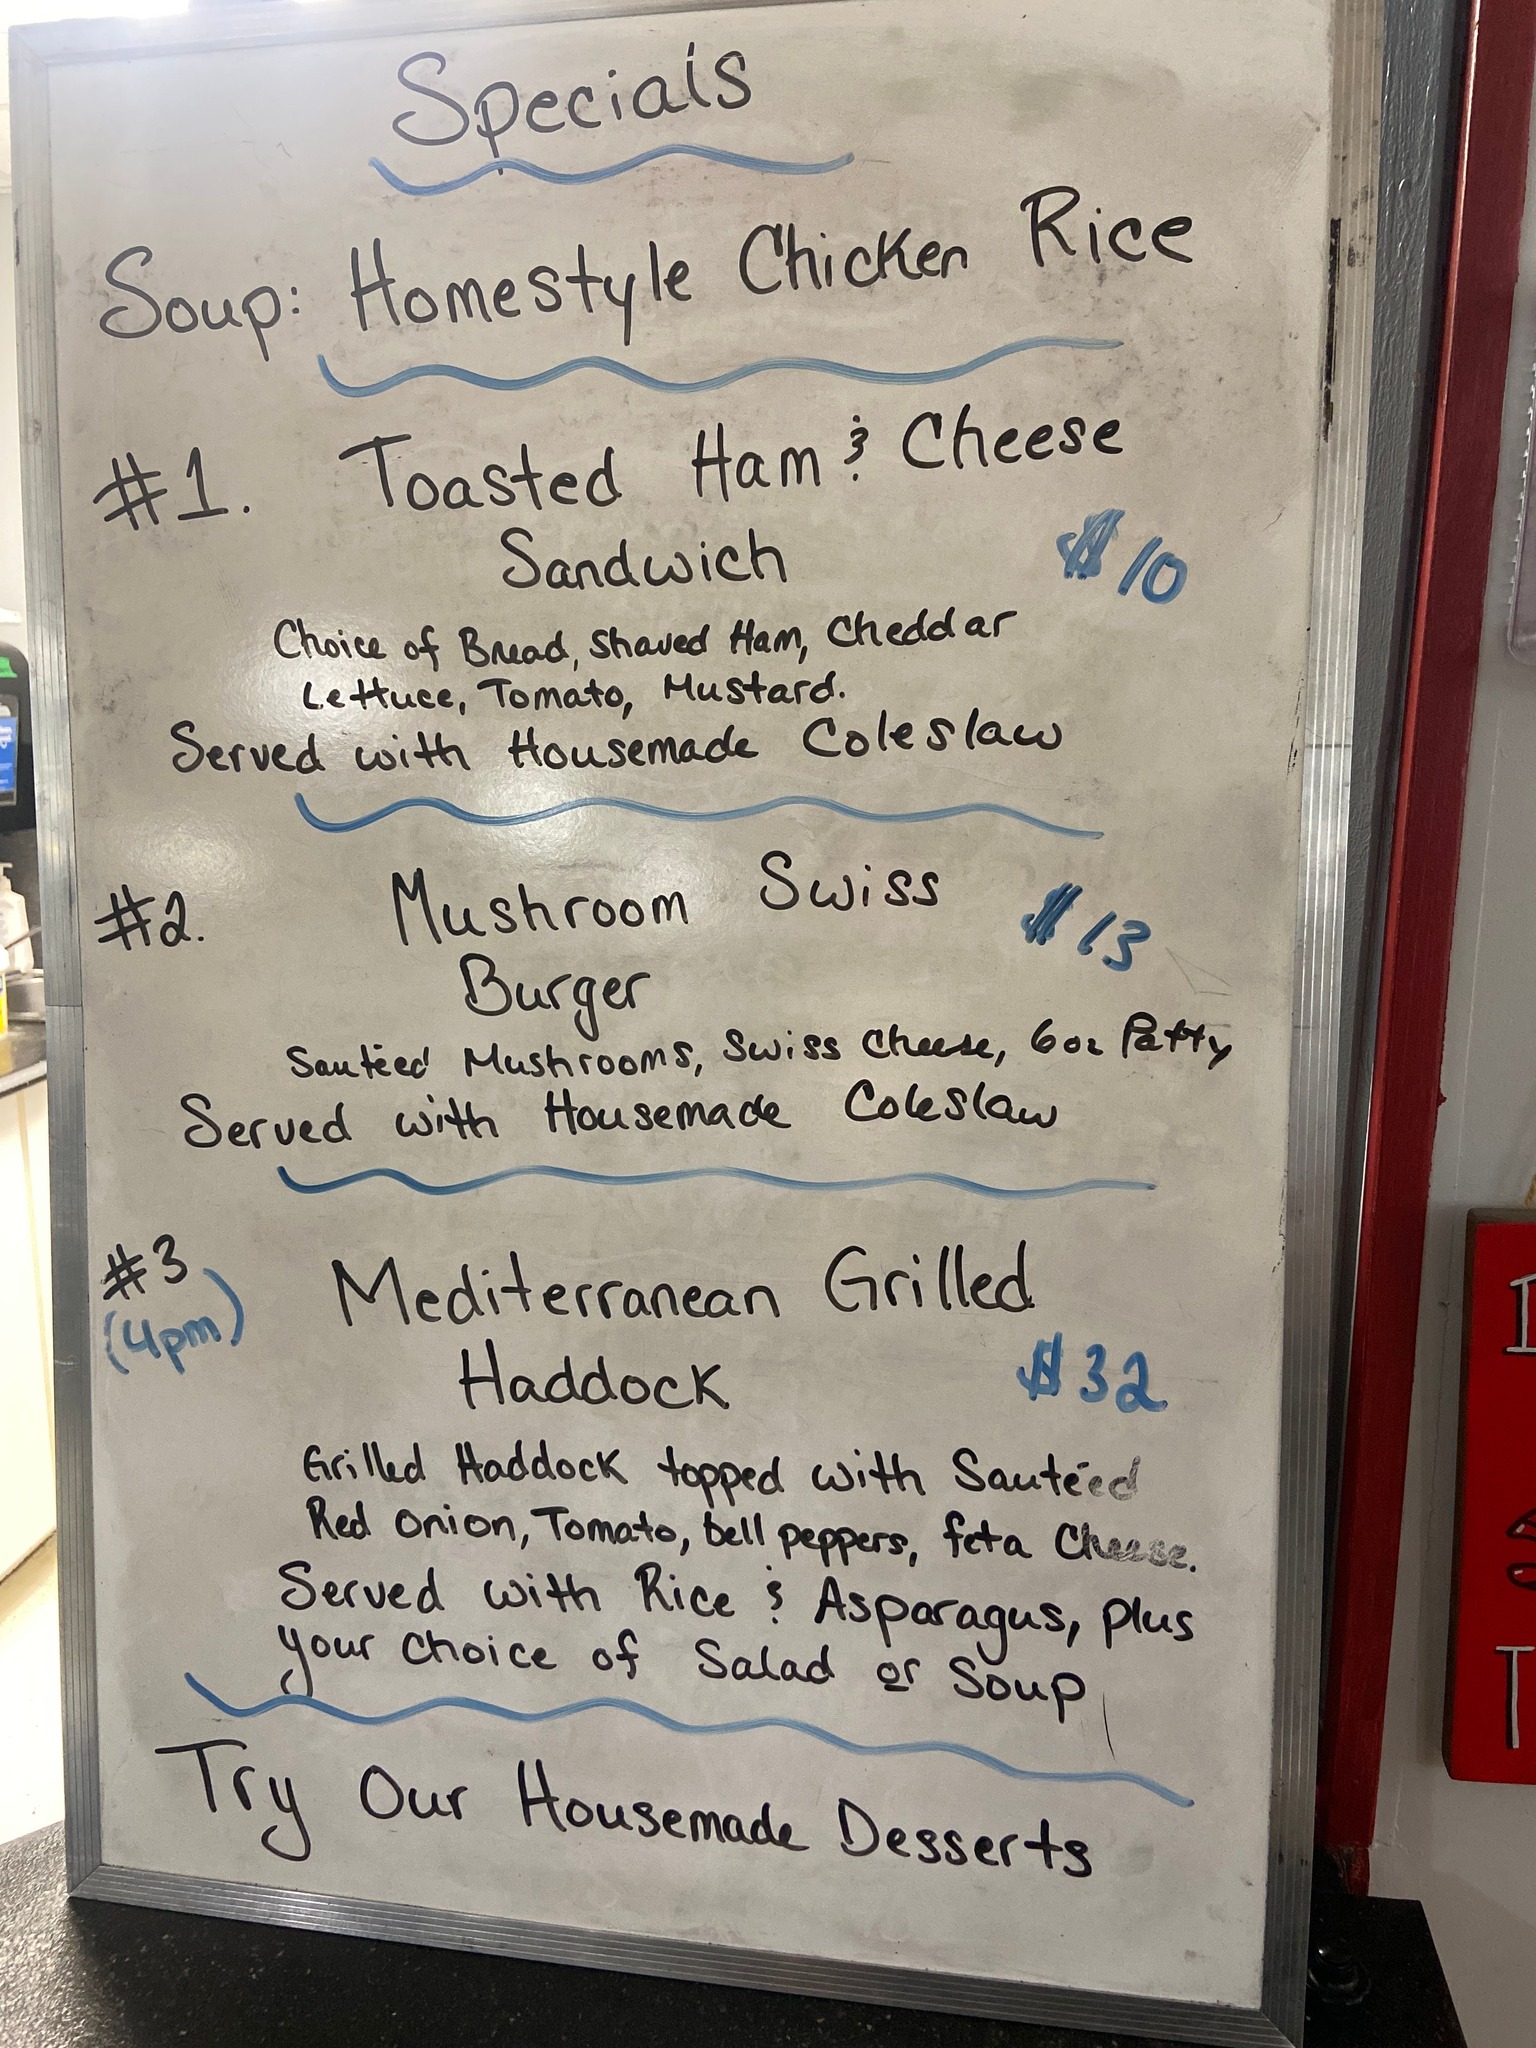 Specials
Soup: Homestyle Chicken Rice
#1. Toasted Ham & Cheese
Sandwich $10
Choice of Bread, Shaved Ham, Cheddar
Lettuce, Tomato, Mustard.
Served with Housemade Coleslaw
#2. Mushroom Swiss $13
Burger
Sautéed Mushrooms, Swiss Cheese, 6oz Patty
Served with Housemade Coleslaw
#3 Mediterranean Grilled
(4pm) Haddock $32
Grilled Haddock topped with Sautéed
Red onion, Tomato, bell peppers, feta Cheese.
Served with Rice & Asparagus, plus
your choice of Salad or Soup
Try Our Housemade Desserts